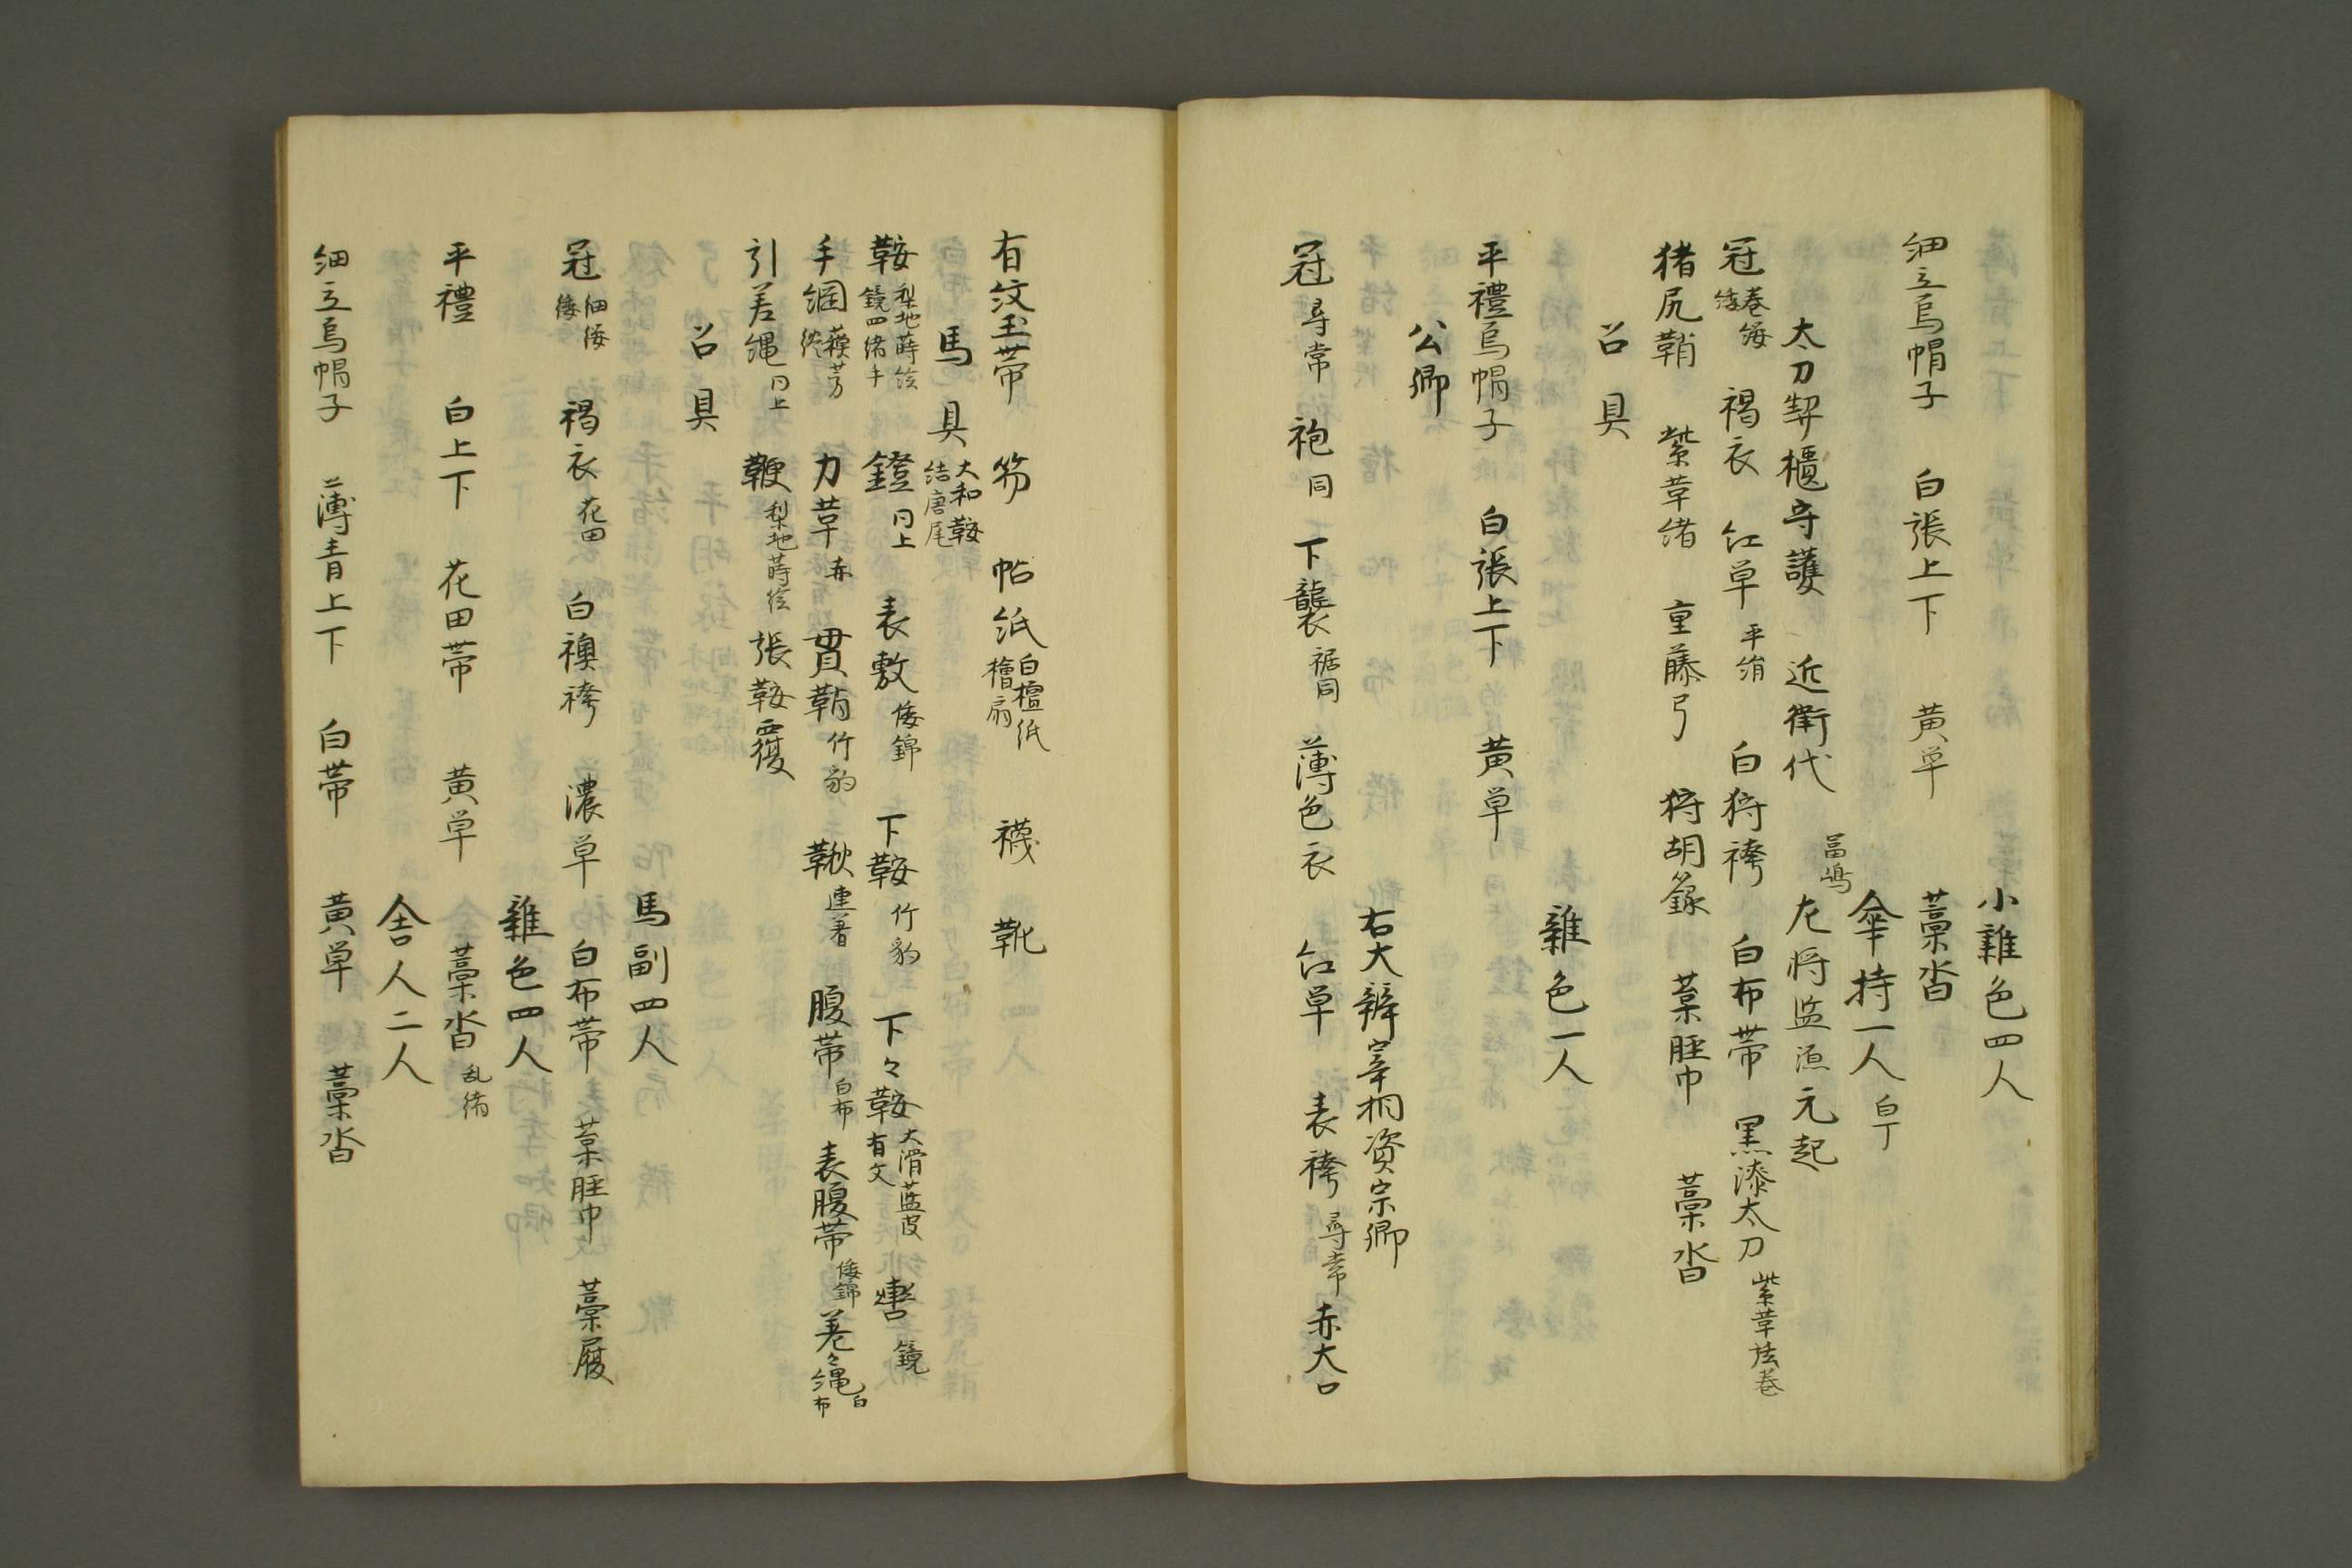 小雜色四人
細立烏帽子 白張上下 黄単 藁沓
傘持一人 白丁
太刀契櫃守護 近衛代 冨嶋左将監源元起
冠 巻纓 緌 褐衣 紅単 平絹 白狩袴 白布帯 黒漆太刀 紫革弦巻
猪尻鞘 紫革緒 重藤弓 狩胡籙 葉脛巾 藁沓
召具
雜色一人
平禮烏帽子 白張上下 黄単
公卿
右大辨宰相資宗卿
冠 尋常 袍 同 下襲 裾同 薄色衣 紅単 表袴 尋常 赤大口
有紋玉帯 笏 帖紙 白檀紙 檜扇 襪 靴
馬具 大和鞍 結唐尾
鞍 梨地蒔絵 鏡四緒手 鐙 同上 表敷 倭錦 下鞍 竹豹 下々鞍 大滑藍皮 有文 轡 鏡
手綱 蘇芳 力革 赤 貫鞘 竹豹 鞦 連著 腹帯 白布 表腹帯 倭錦 差々縄 白布
引差縄 同上 鞭 梨地蒔絵 張鞍覆
召具
馬副四人
冠 細纓 緌 褐衣 花田 白襖袴 濃単 白布帯 葉脛巾 藁履
雜色四人
平禮 白上下 花田帯 黄単 藁沓 乱緒
舎人二人
細立烏帽子 薄青上下 白帯 黄単 藁沓